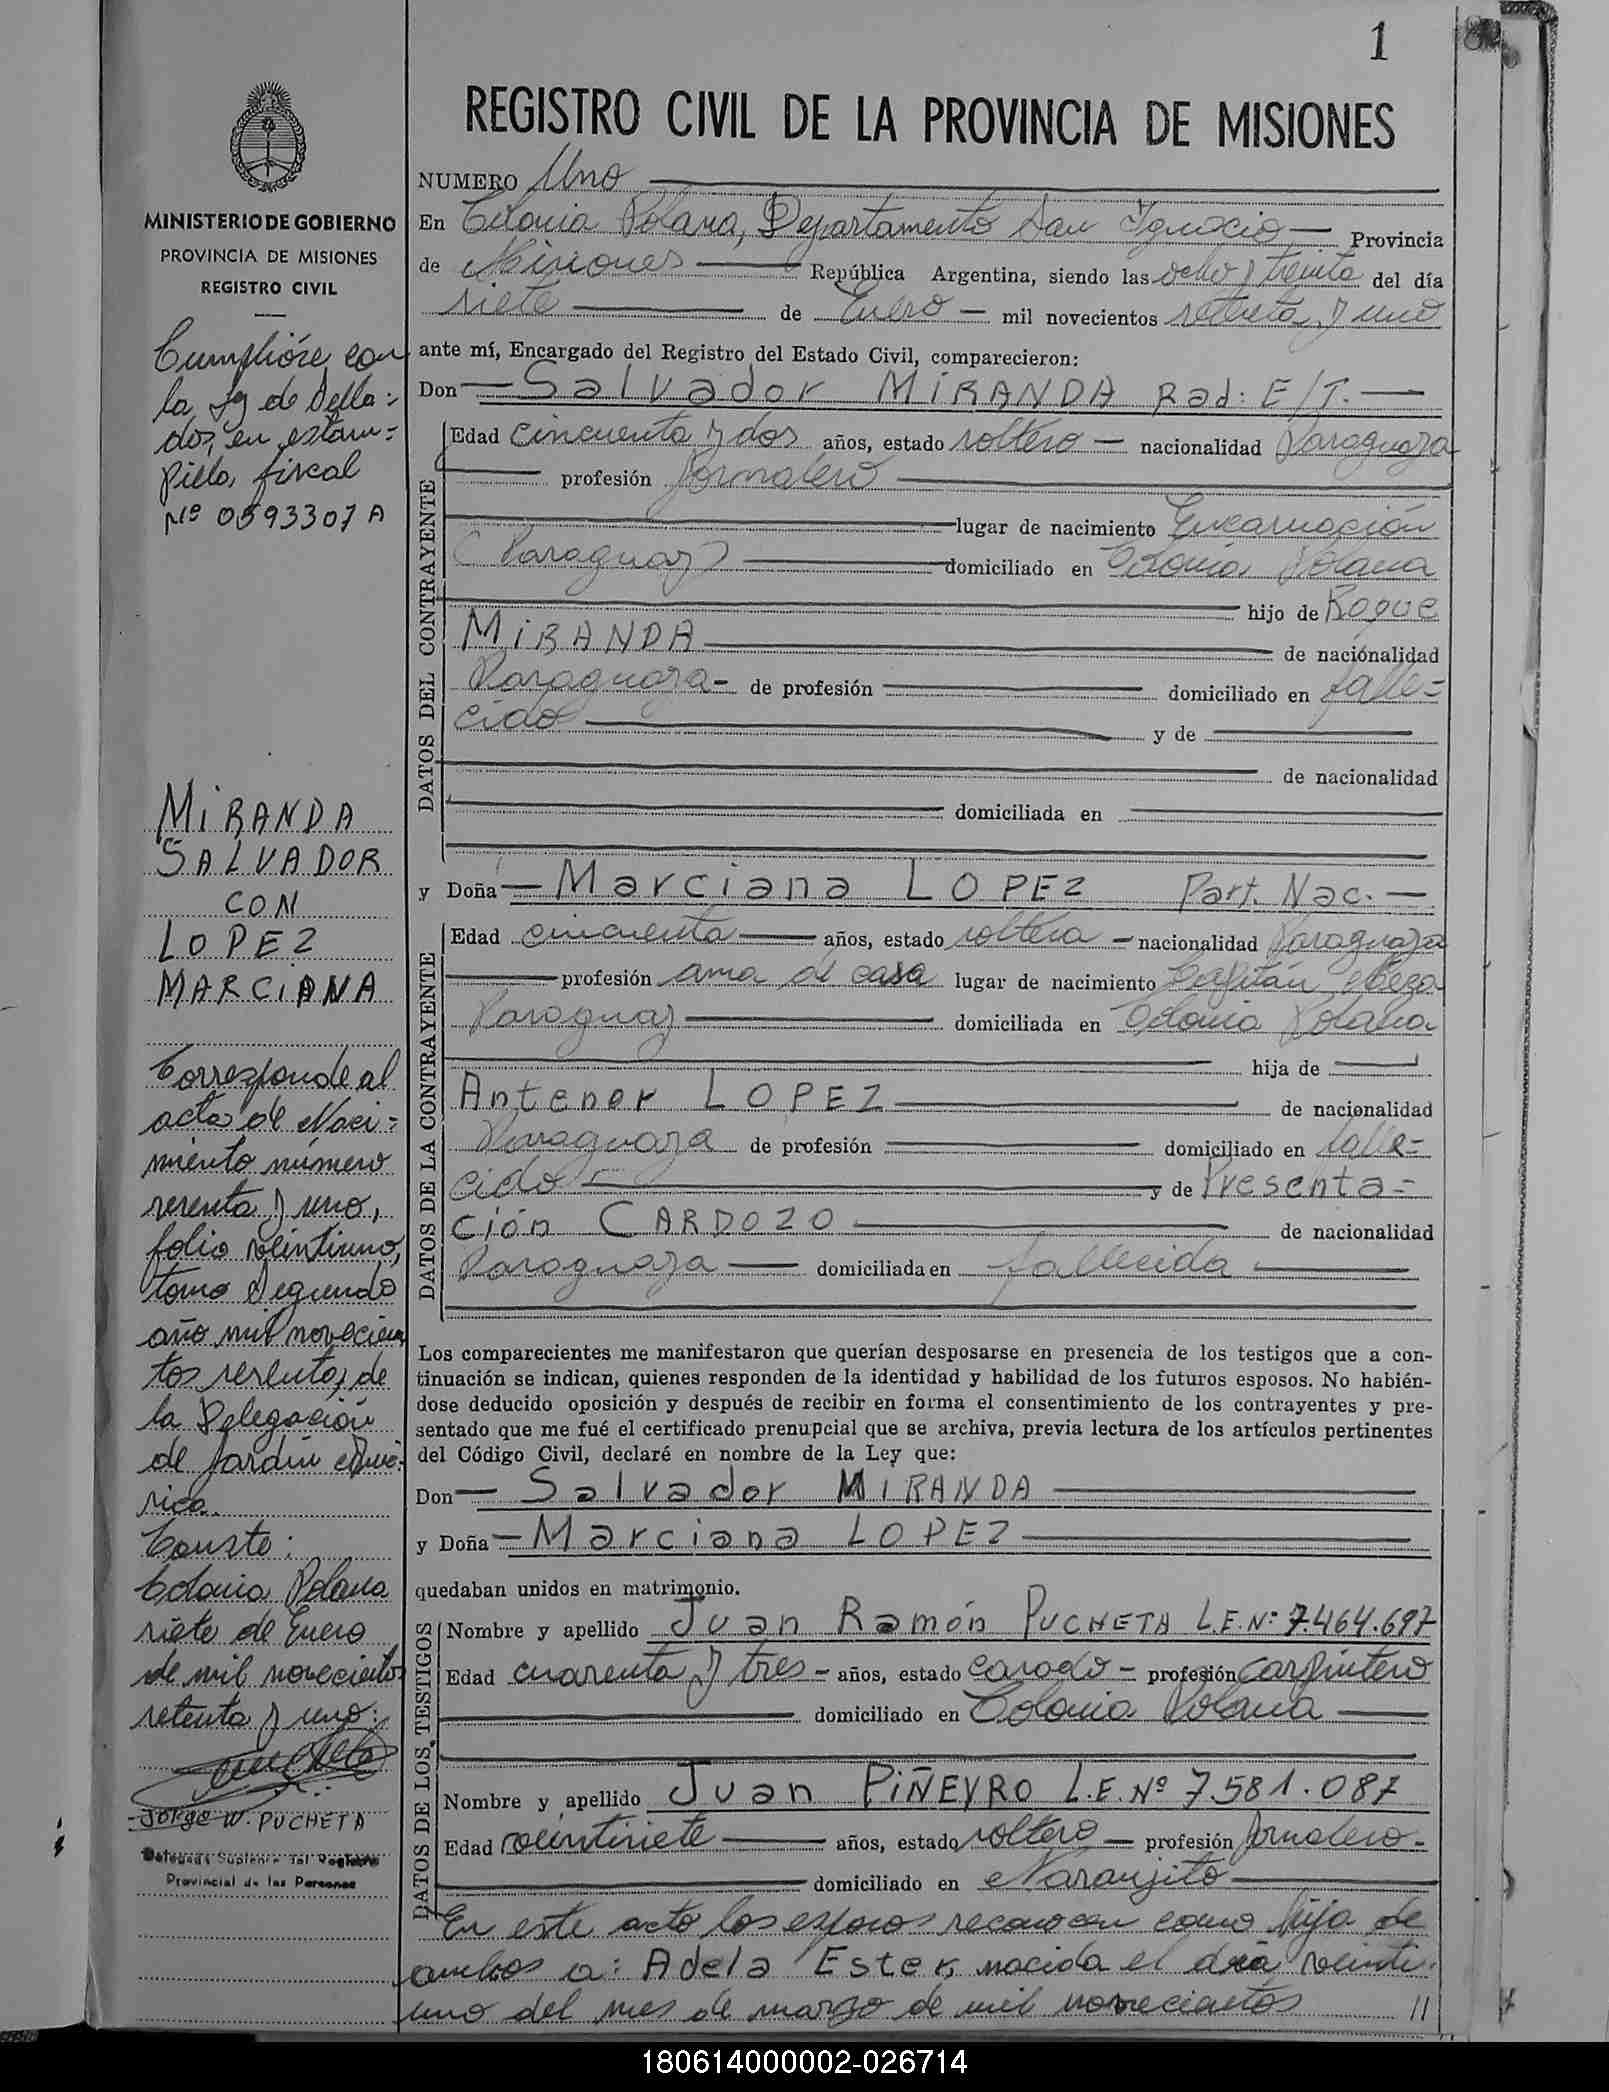 1
REGISTRO CIVIL DE LA PROVINCIA DE MISIONES
MINISTERIO DE GOBIERNO
PROVINCIA DE MISIONES
REGISTRO CIVIL
Cumplióse con
la Ley de Sella=
dos, en estam=
pilla fiscal
Nº 0593307 A
MIRANDA
SALVADOR
CON
LOPEZ
MARCIANA
Corresponde al
acta de Naci=
miento número
sesenta y uno,
folio veintiuno,
tomo Segundo
año mil novecien
tos sesenta, de
la Delegación
de Jardín Amé=
rica.
Conste:
Colonia Polana
siete de Enero
de mil novecientos
setenta y uno:
JORGE W. PUCHETA
Delegado Suplente del Registro
Provincial de las Personas
NUMERO Uno
En Colonia Polana, Departamento San Ignacio Provincia
de Misiones República Argentina, siendo las ocho y treinta del día
siete de Enero mil novecientos setenta y uno
ante mí, Encargado del Registro del Estado Civil, comparecieron:
Don Salvador MIRANDA Rad: E/T.
DATOS DEL CONTRAYENTE
Edad cincuenta y dos años, estado soltero nacionalidad Paraguaya
profesión Jornalero
lugar de nacimiento Encarnación
(Paraguay) domiciliado en Colonia Polana
hijo de Roque
MIRANDA de nacionalidad
Paraguaya de profesión domiciliado en falle=
cido y de
de nacionalidad
domiciliada en
y Doña Marciana LOPEZ Part. Nac.
DATOS DE LA CONTRAYENTE
Edad cincuenta años, estado soltera nacionalidad Paraguaya
profesión ama de casa lugar de nacimiento Capitán Meza
Paraguay domiciliada en Colonia Polana
hija de
Antenor LOPEZ de nacionalidad
Paraguaya de profesión domiciliado en falle=
cido y de Presenta=
ción CARDOZO de nacionalidad
Paraguaya domiciliada en fallecida
Los comparecientes me manifestaron que querían desposarse en presencia de los testigos que a con-
tinuación se indican, quienes responden de la identidad y habilidad de los futuros esposos. No habién-
dose deducido oposición y después de recibir en forma el consentimiento de los contrayentes y pre-
sentado que me fué el certificado prenupcial que se archiva, previa lectura de los artículos pertinentes
del Código Civil, declaré en nombre de la Ley que:
Don Salvador MIRANDA
y Doña Marciana LOPEZ
quedaban unidos en matrimonio.
DATOS DE LOS TESTIGOS
Nombre y apellido Juan Ramón PUCHETA L.E.Nº 7.464.697
Edad cuarenta y tres años, estado casado profesión Carpintero
domiciliado en Colonia Polana
Nombre y apellido Juan PIÑEYRO L.E.Nº 7.581.087
Edad veintisiete años, estado soltero profesión Jornalero
domiciliado en Naranjito
En este acto los esposos reconocen como hija de
ambos a: Adela Ester, nacida el día veinti
uno del mes de marzo de mil novecientos //
180614000002-026714